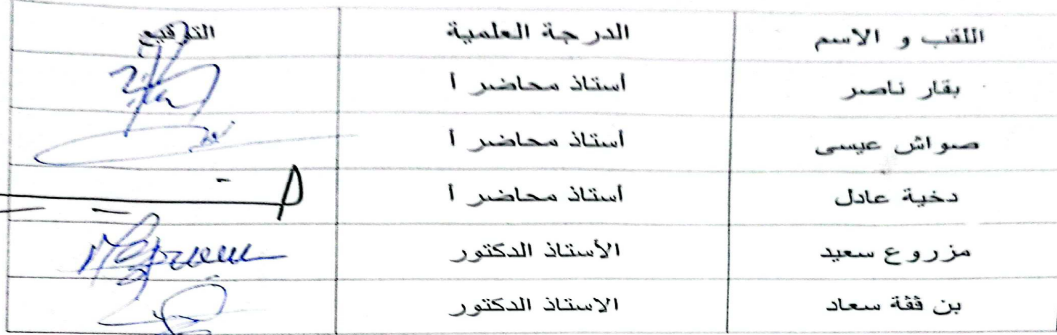 اللقب و الاسم الدرجة العلمية التوقيع
بقار ناصر أستاذ محاضر أ
صواش عيسى أستاذ محاضر أ
دخية عادل أستاذ محاضر أ
مزروع سعيد الأستاذ الدكتور
بن ققة سعاد الاستاذ الدكتور